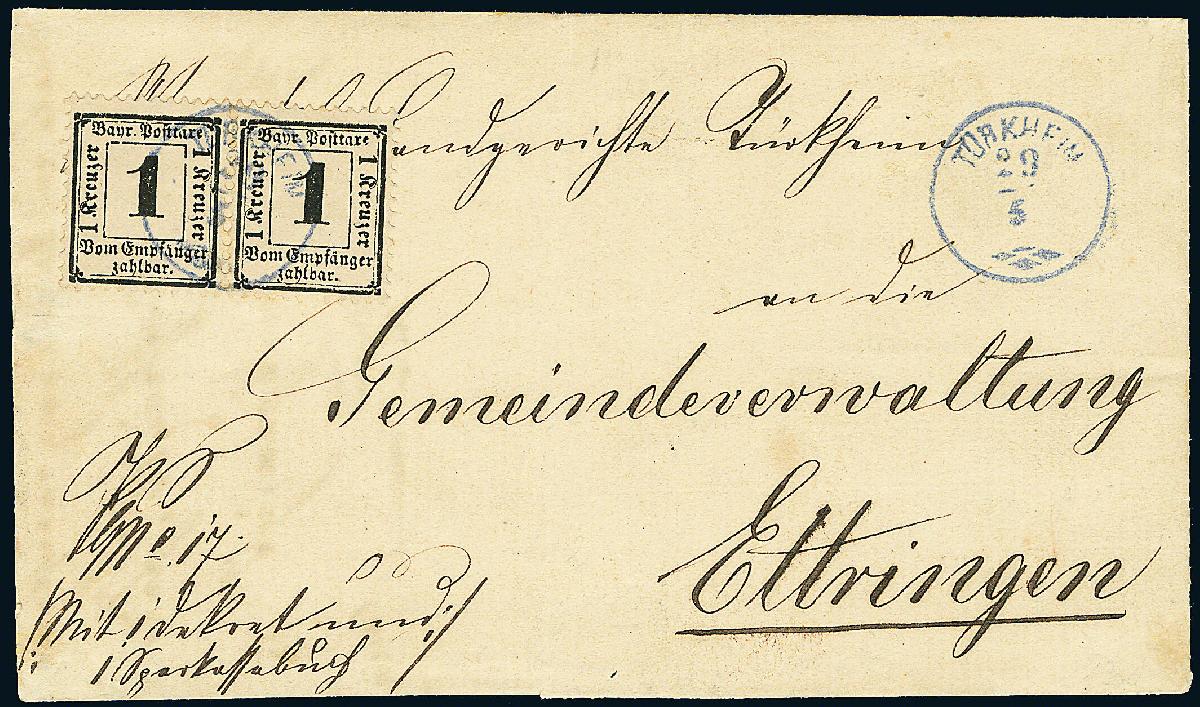 Landgerichte Türkheim
Bayr. Posttaxe
1 Kreuzer
1
1 Kreuzer
Vom Empfänger
zahlbar.
Bayr. Posttaxe
1 Kreuzer
1
1 Kreuzer
Vom Empfänger
zahlbar.
TÜRKHEIM
an die
Gemeindeverwaltung
Ettringen
No. 17.
Mit 1 Dekret und
1 Sparkassebuch